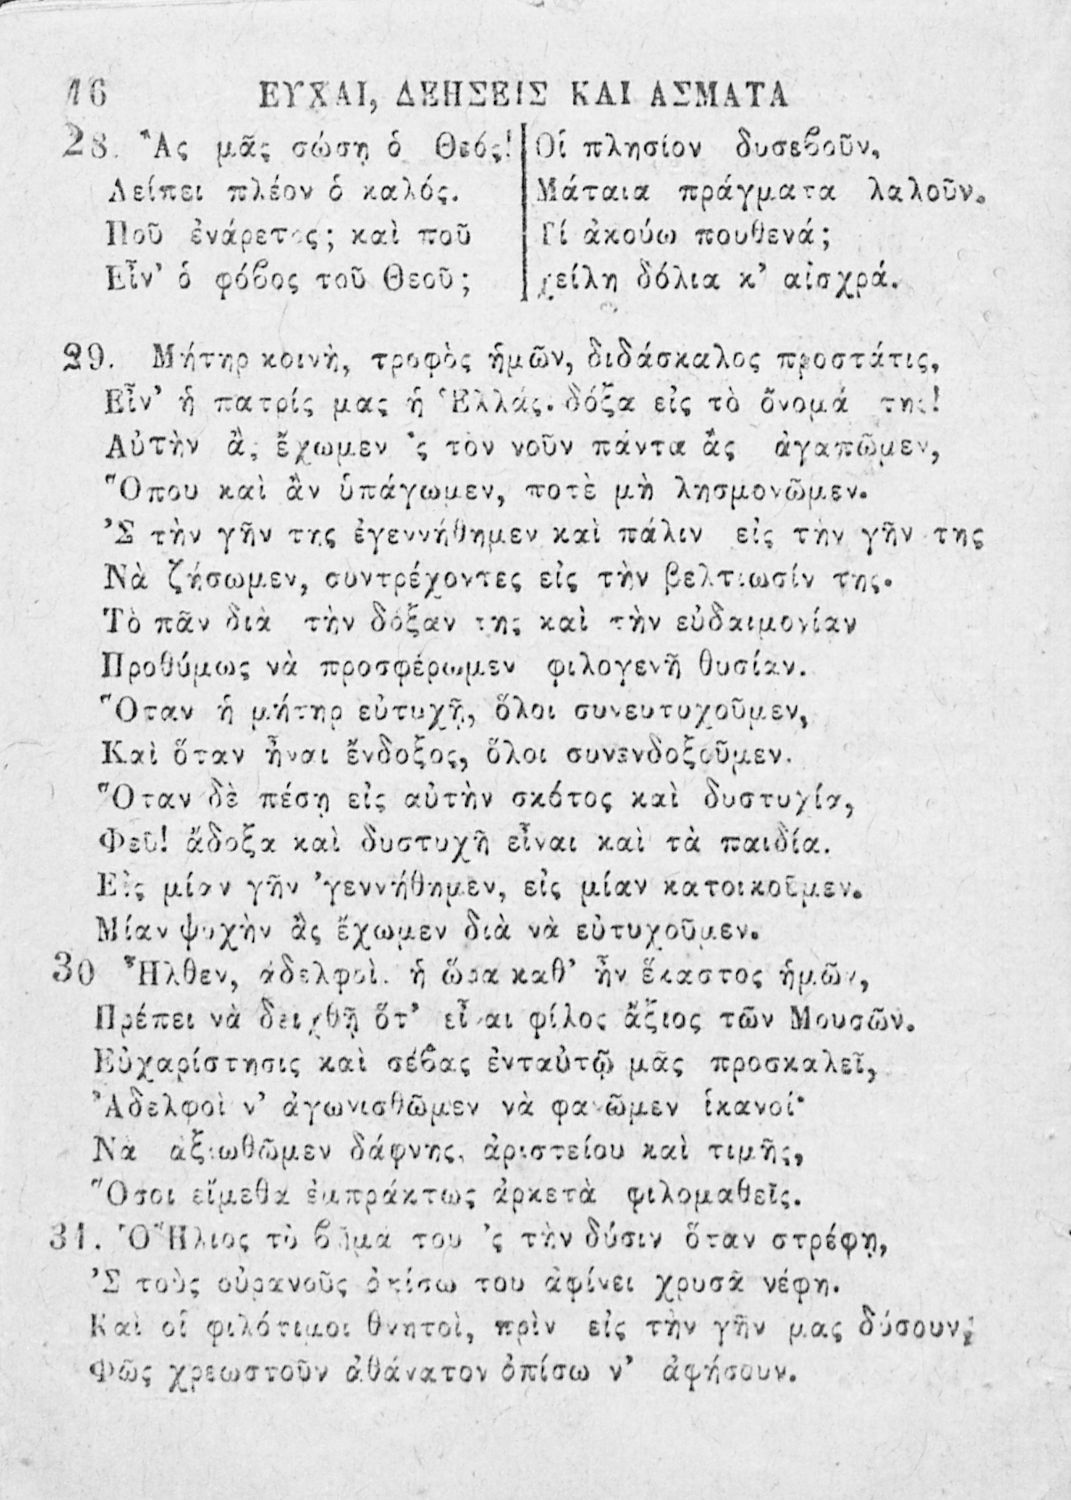 16 ΕΥΧΑΙ, ΔΕΗΣΕΙΣ ΚΑΙ ΑΣΜΑΤΑ
28. Ἂς μᾶς σώσῃ ὁ Θεός!
Λείπει πλέον ὁ καλός.
Ποῦ ἐνάρετος; καὶ ποῦ
Εἶν’ ὁ φόβος τοῦ Θεοῦ;
Οἱ πλησίον δυσεβοῦν,
Μάταια πράγματα λαλοῦν.
Τί ἀκούω πουθενά;
χείλη δόλια κ’ αἰσχρά.
29. Μήτηρ κοινὴ, τροφὸς ἡμῶν, διδάσκαλος προστάτις,
Εἶν’ ἡ πατρίς μας ἡ Ἑλλάς. δόξα εἰς τὸ ὄνομά της!
Αὐτὴν ἂς ἔχωμεν ’ς τὸν νοῦν πάντα ἂς ἀγαπῶμεν,
Ὅπου καὶ ἂν ὑπάγωμεν, ποτὲ μὴ λησμονῶμεν.
’Σ τὴν γῆν της ἐγεννήθημεν καὶ πάλιν εἰς τὴν γῆν της
Νὰ ζήσωμεν, συντρέχοντες εἰς τὴν βελτίωσίν της.
Τὸ πᾶν διὰ τὴν δόξαν της καὶ τὴν εὐδαιμονίαν
Προθύμως νὰ προσφέρωμεν φιλογενῆ θυσίαν.
Ὅταν ἡ μήτηρ εὐτυχῇ, ὅλοι συνευτυχοῦμεν,
Καὶ ὅταν ἦναι ἔνδοξος, ὅλοι συνενδοξοῦμεν.
Ὅταν δὲ πέσῃ εἰς αὐτὴν σκότος καὶ δυστυχία,
Φεῦ! ἄδοξα καὶ δυστυχῆ εἶναι καὶ τὰ παιδία.
Εἰς μίαν γῆν ’γεννήθημεν, εἰς μίαν κατοικοῦμεν.
Μίαν ψυχὴν ἂς ἔχωμεν διὰ νὰ εὐτυχοῦμεν.
30 Ἦλθεν, ἀδελφοὶ. ἡ ὥρα καθ’ ἣν ἕκαστος ἡμῶν,
Πρέπει νὰ δειχθῇ ὅτ’ εἶναι φίλος ἄξιος τῶν Μουσῶν.
Εὐχαρίστησις καὶ σέβας ἐνταὐτῷ μᾶς προσκαλεῖ,
Ἀδελφοὶ ν’ ἀγωνισθῶμεν νὰ φανῶμεν ἱκανοί·
Νὰ ἀξιωθῶμεν δάφνης, ἀριστείου καὶ τιμῆς,
Ὅσοι εἴμεθα ἐμπράκτως ἀρκετὰ φιλομαθεῖς.
31. Ὁ Ἥλιος τὸ βῆμά του ’ς τὴν δύσιν ὅταν στρέφῃ,
’Σ τοὺς οὐρανοῦς ὀπίσω του ἀφίνει χρυσᾶ νέφη.
Καὶ οἱ φιλότιμοι θνητοὶ, πρὶν εἰς τὴν γῆν μας δύσουν,
Φῶς χρεωστοῦν ἀθάνατον ὀπίσω ν’ ἀφήσουν.